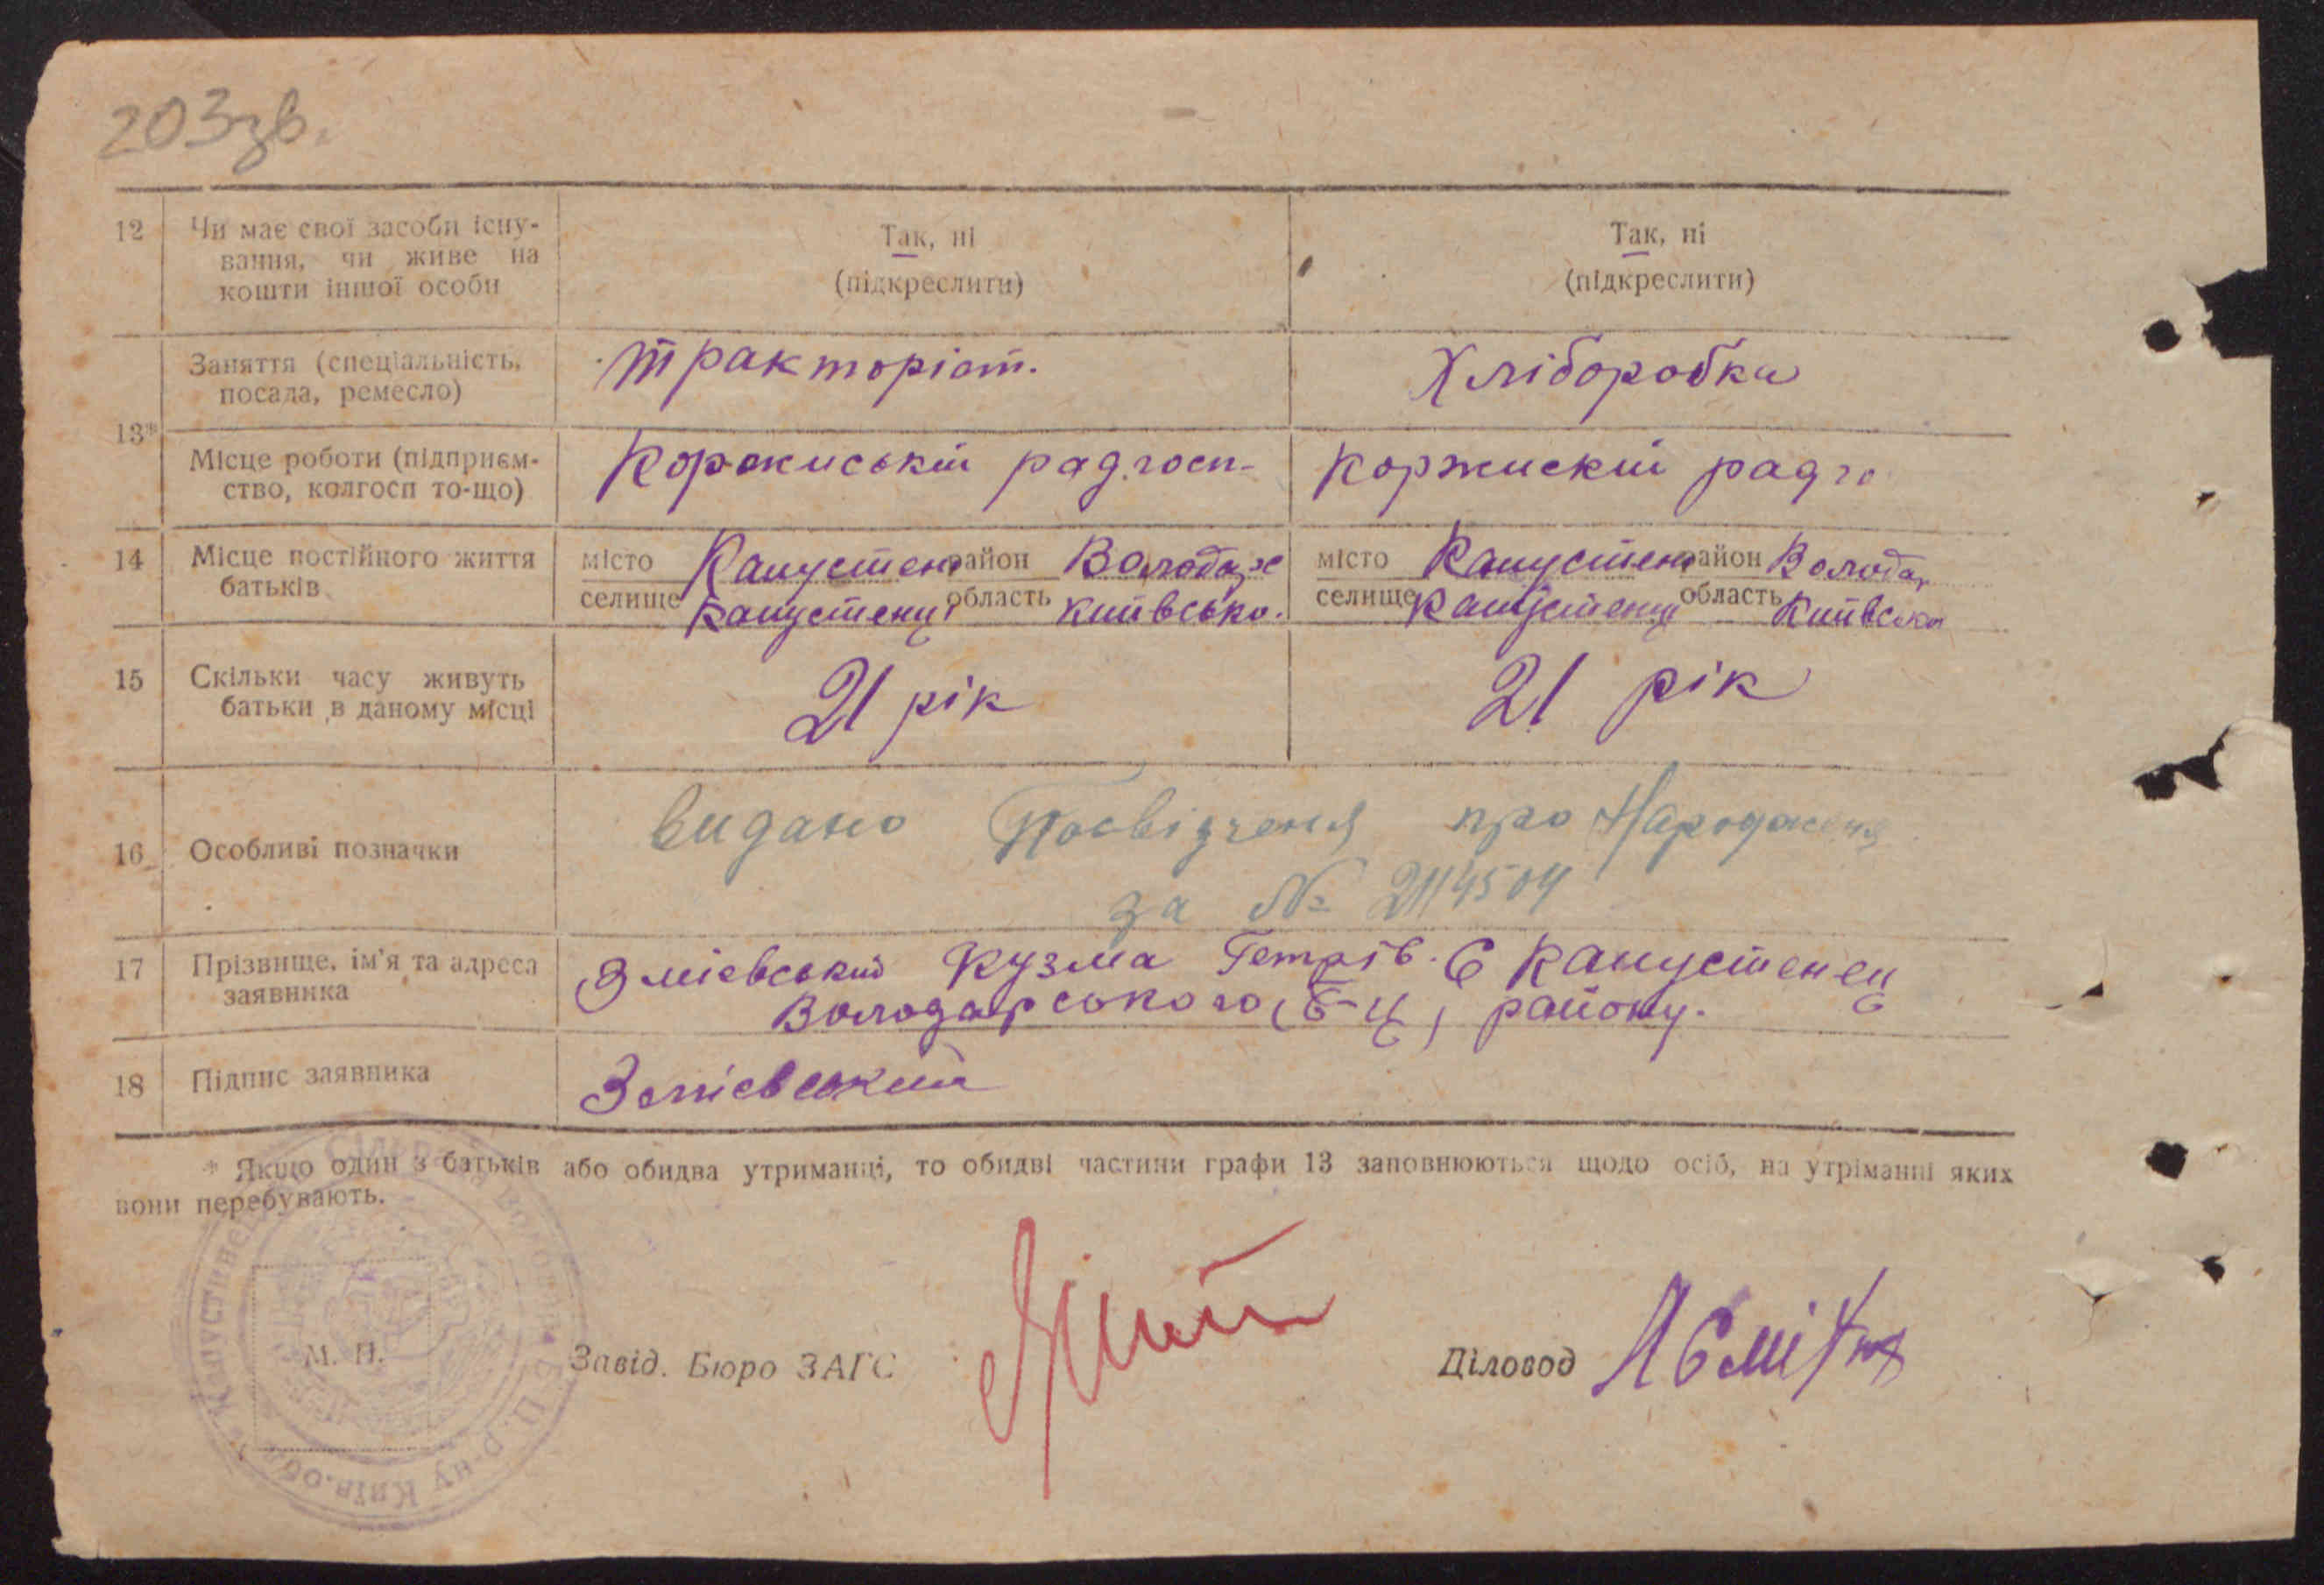 203зв.
12 Чи має свої засоби існу- Так, ні Так, ні
вання, чи живе на
кошти іншої особи (підкреслити) (підкреслити)
Заняття (спеціальність, Тракторіст. Хліборобка
посада, ремесло)
13*
Місце роботи (підприєм- Коржиській радгосп- Коржискій радго
ство, колгосп то-що)
14 Місце постійного життя місто Капустен район Володарс місто Капустен район Володар
батьків селище Капустенці область Київсько. селище Капустенці область Київська
15 Скільки часу живуть 21 рік 21 рік
батьки в даному місці
видано Посвідченя про Народженя
16 Особливі позначки
за № 2114504
17 Прізвище, ім'я та адреса Змієвський Кузма Петрів. С Капустенец
заявника Володарського (Б-Ц) району.
18 Підпис заявника Змієвський
* Якщо один з батьків або обидва утриманці, то обидві частини графи 13 заповнюються щодо осіб, на утріманні яких
вони перебувають.
М. П. Завід. Бюро ЗАГС Діловод